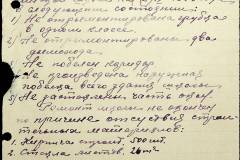 следующем состоянии:
1) Не отремонтирована грубка
в одном классе.
2) Не отремонтировано два
дымохода.
3) Не побелен коридор
4) Не произведена наружная
побелка всего здания школы
5) Не застеклен часть окон
Ремонт школы не окончен
по причине отсуствия строи-
тельных материалов:
1. Кирпича строит. 500 шт.
2. Стекла листов. 26 m²